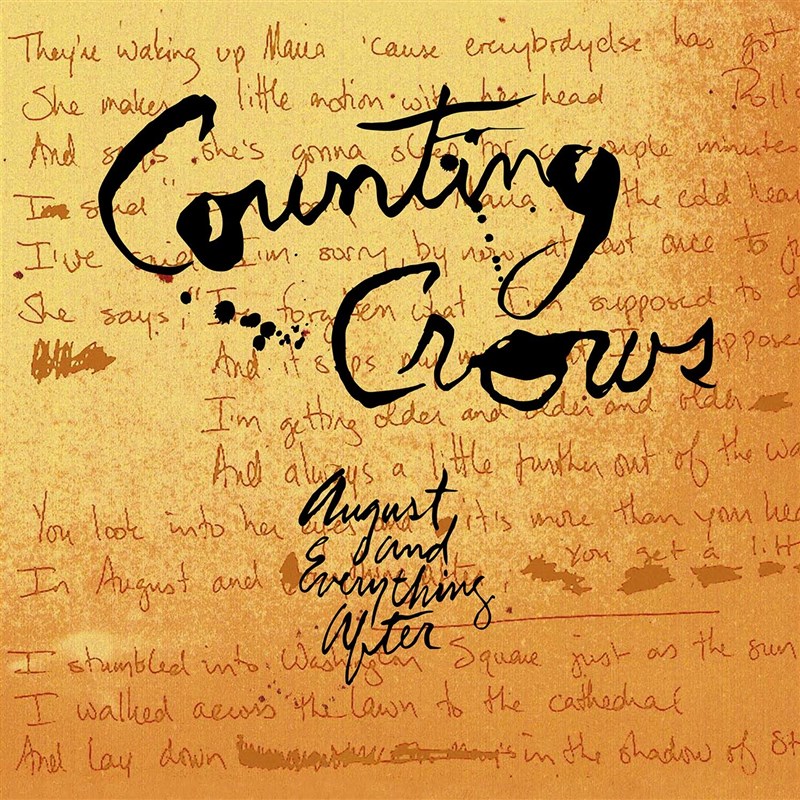 They're waking up Maria 'cause everybodyelse has got
She makes little motion with her head Rolls
And says she's gonna sleep for a couple minutes
I'm said "I Maria the cold hear
I've said I'm sorry, by now, at least once to
She says, "I've forgotten what I'm supposed to d
And it slips my mind I'm suppose
I'm getting older and older and older
And always a little further out of the wa
You look into her eyes and it's more than your hea
In August and Everything After, You get a litt
I stumbled into Washington Square just as the sun
I walked across the lawn to the cathedral
And lay down in the shadow of St
Counting
Crows
August
and
Everything
After